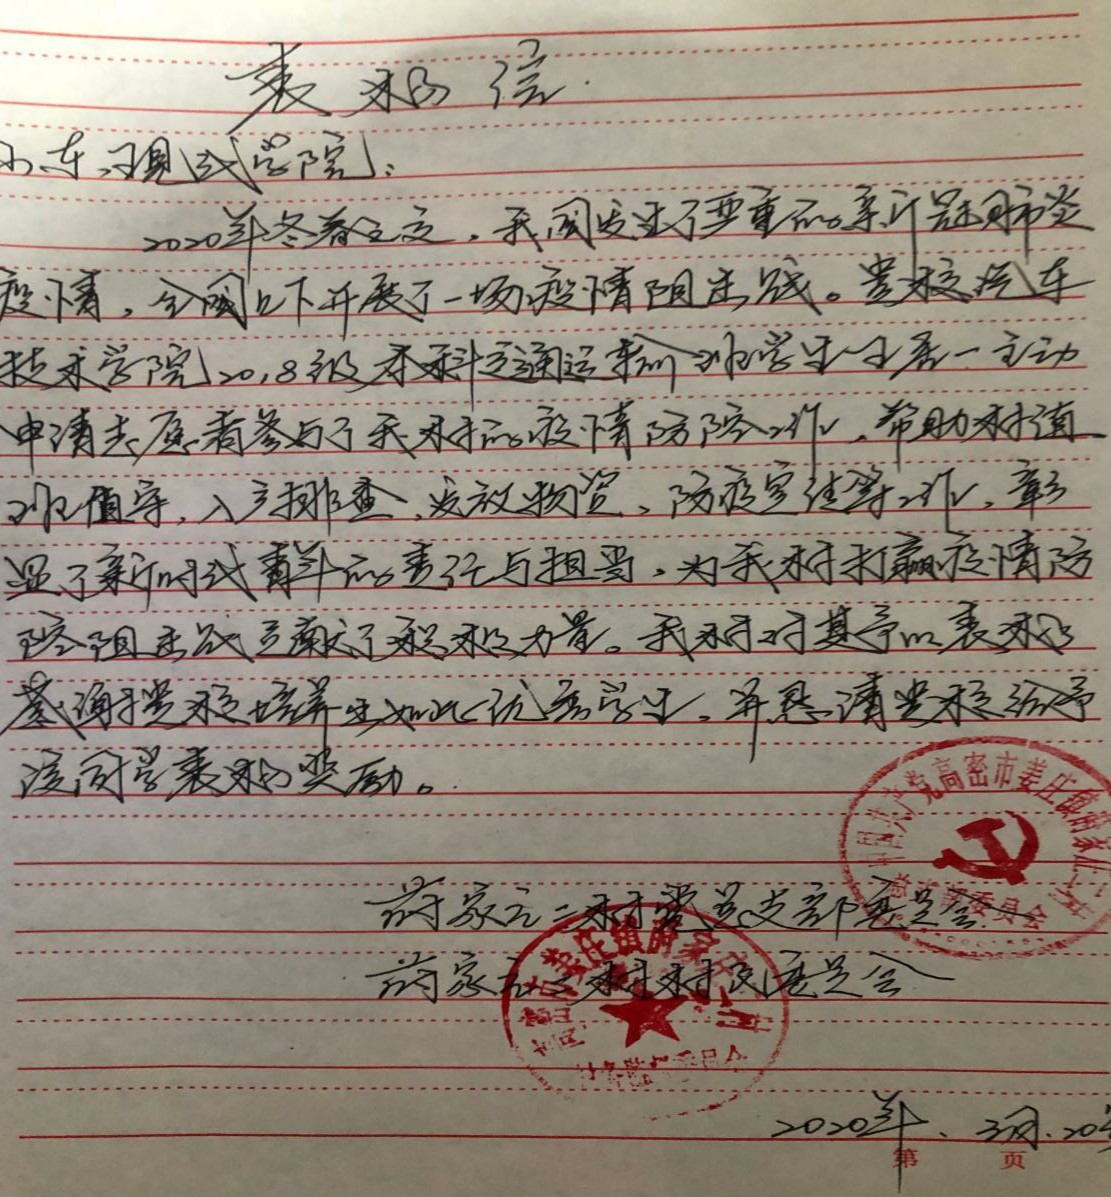 表扬信
山东现代学院:
2020年冬春之交,我国发生了严重的新冠肺炎
疫情,全国上下开展了一场疫情阻击战。贵校汽车
技术学院2018级本科交通运输班学生主动
申请志愿者参与了我村的疫情防控工作,帮助村值
班值守,入户排查,发放物资,防疫宣传等工作,彰
显了新时代青年的责任与担当,为我村打赢疫情防
控阻击战贡献了积极力量。我村对其予以表扬
感谢贵校培养出如此优秀学生,并恳请贵校给予
该同学表扬奖励。
中国共产党高密市姜庄镇
家庄二村党员支部委员会
家庄二村村民委员会
姜庄镇
2020年.3月.20
第 页